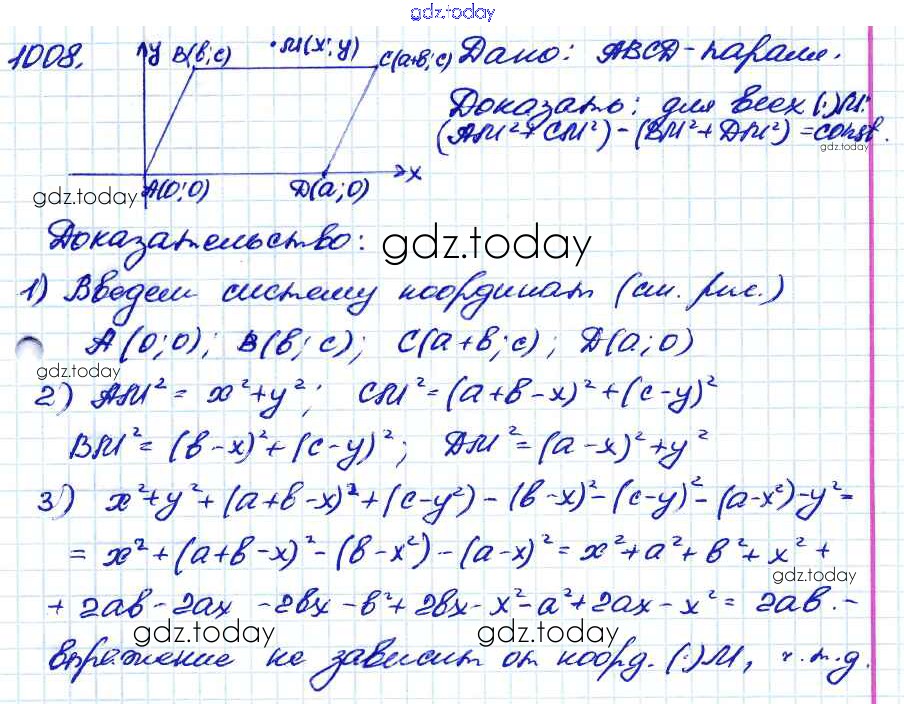 gdz.today
1008. y B(в;с) ·M(x;y) C(a+в;с) Дано: ABCD-паралл.
Доказать: для всех (·)M:
(AM²+CM²)-(BM²+DM²)=const.
gdz.today
A(0;0) D(a;0) x
gdz.today
Доказательство:
gdz.today
1) Введем систему координат (см. рис.)
A(0;0); B(в;с); C(a+в;с); D(a;0)
gdz.today
2) AM²= x²+y²; CM²=(a+в-x)²+(c-y)²
BM²=(в-x)²+(c-y)²; DM²=(a-x)²+y²
3) x²+y²+(a+в-x)²+(c-y²)-(в-x)²-(c-y)²-(a-x²)-y²=
= x²+(a+в-x)²-(в-x²)-(a-x)²= x²+a²+в²+x²+
gdz.today
+2aв-2ax-2вx-в²+2вx-x²-a²+2ax-x²=2aв.-
gdz.today gdz.today
выражение не зависит от коорд. (·)M, ч.т.д.